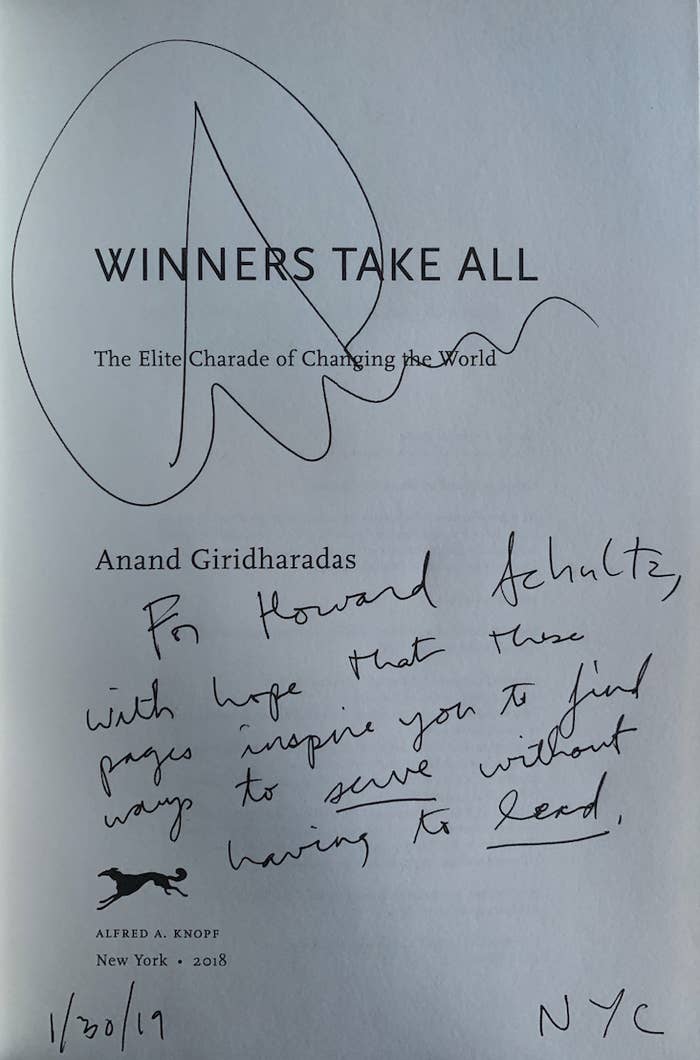 WINNERS TAKE ALL
The Elite Charade of Changing the World
Anand Giridharadas
For Howard Schultz,
with hope that these
pages inspire you to find
ways to serve without
having to lead.
ALFRED A. KNOPF
New York • 2018
1/30/19
NYC